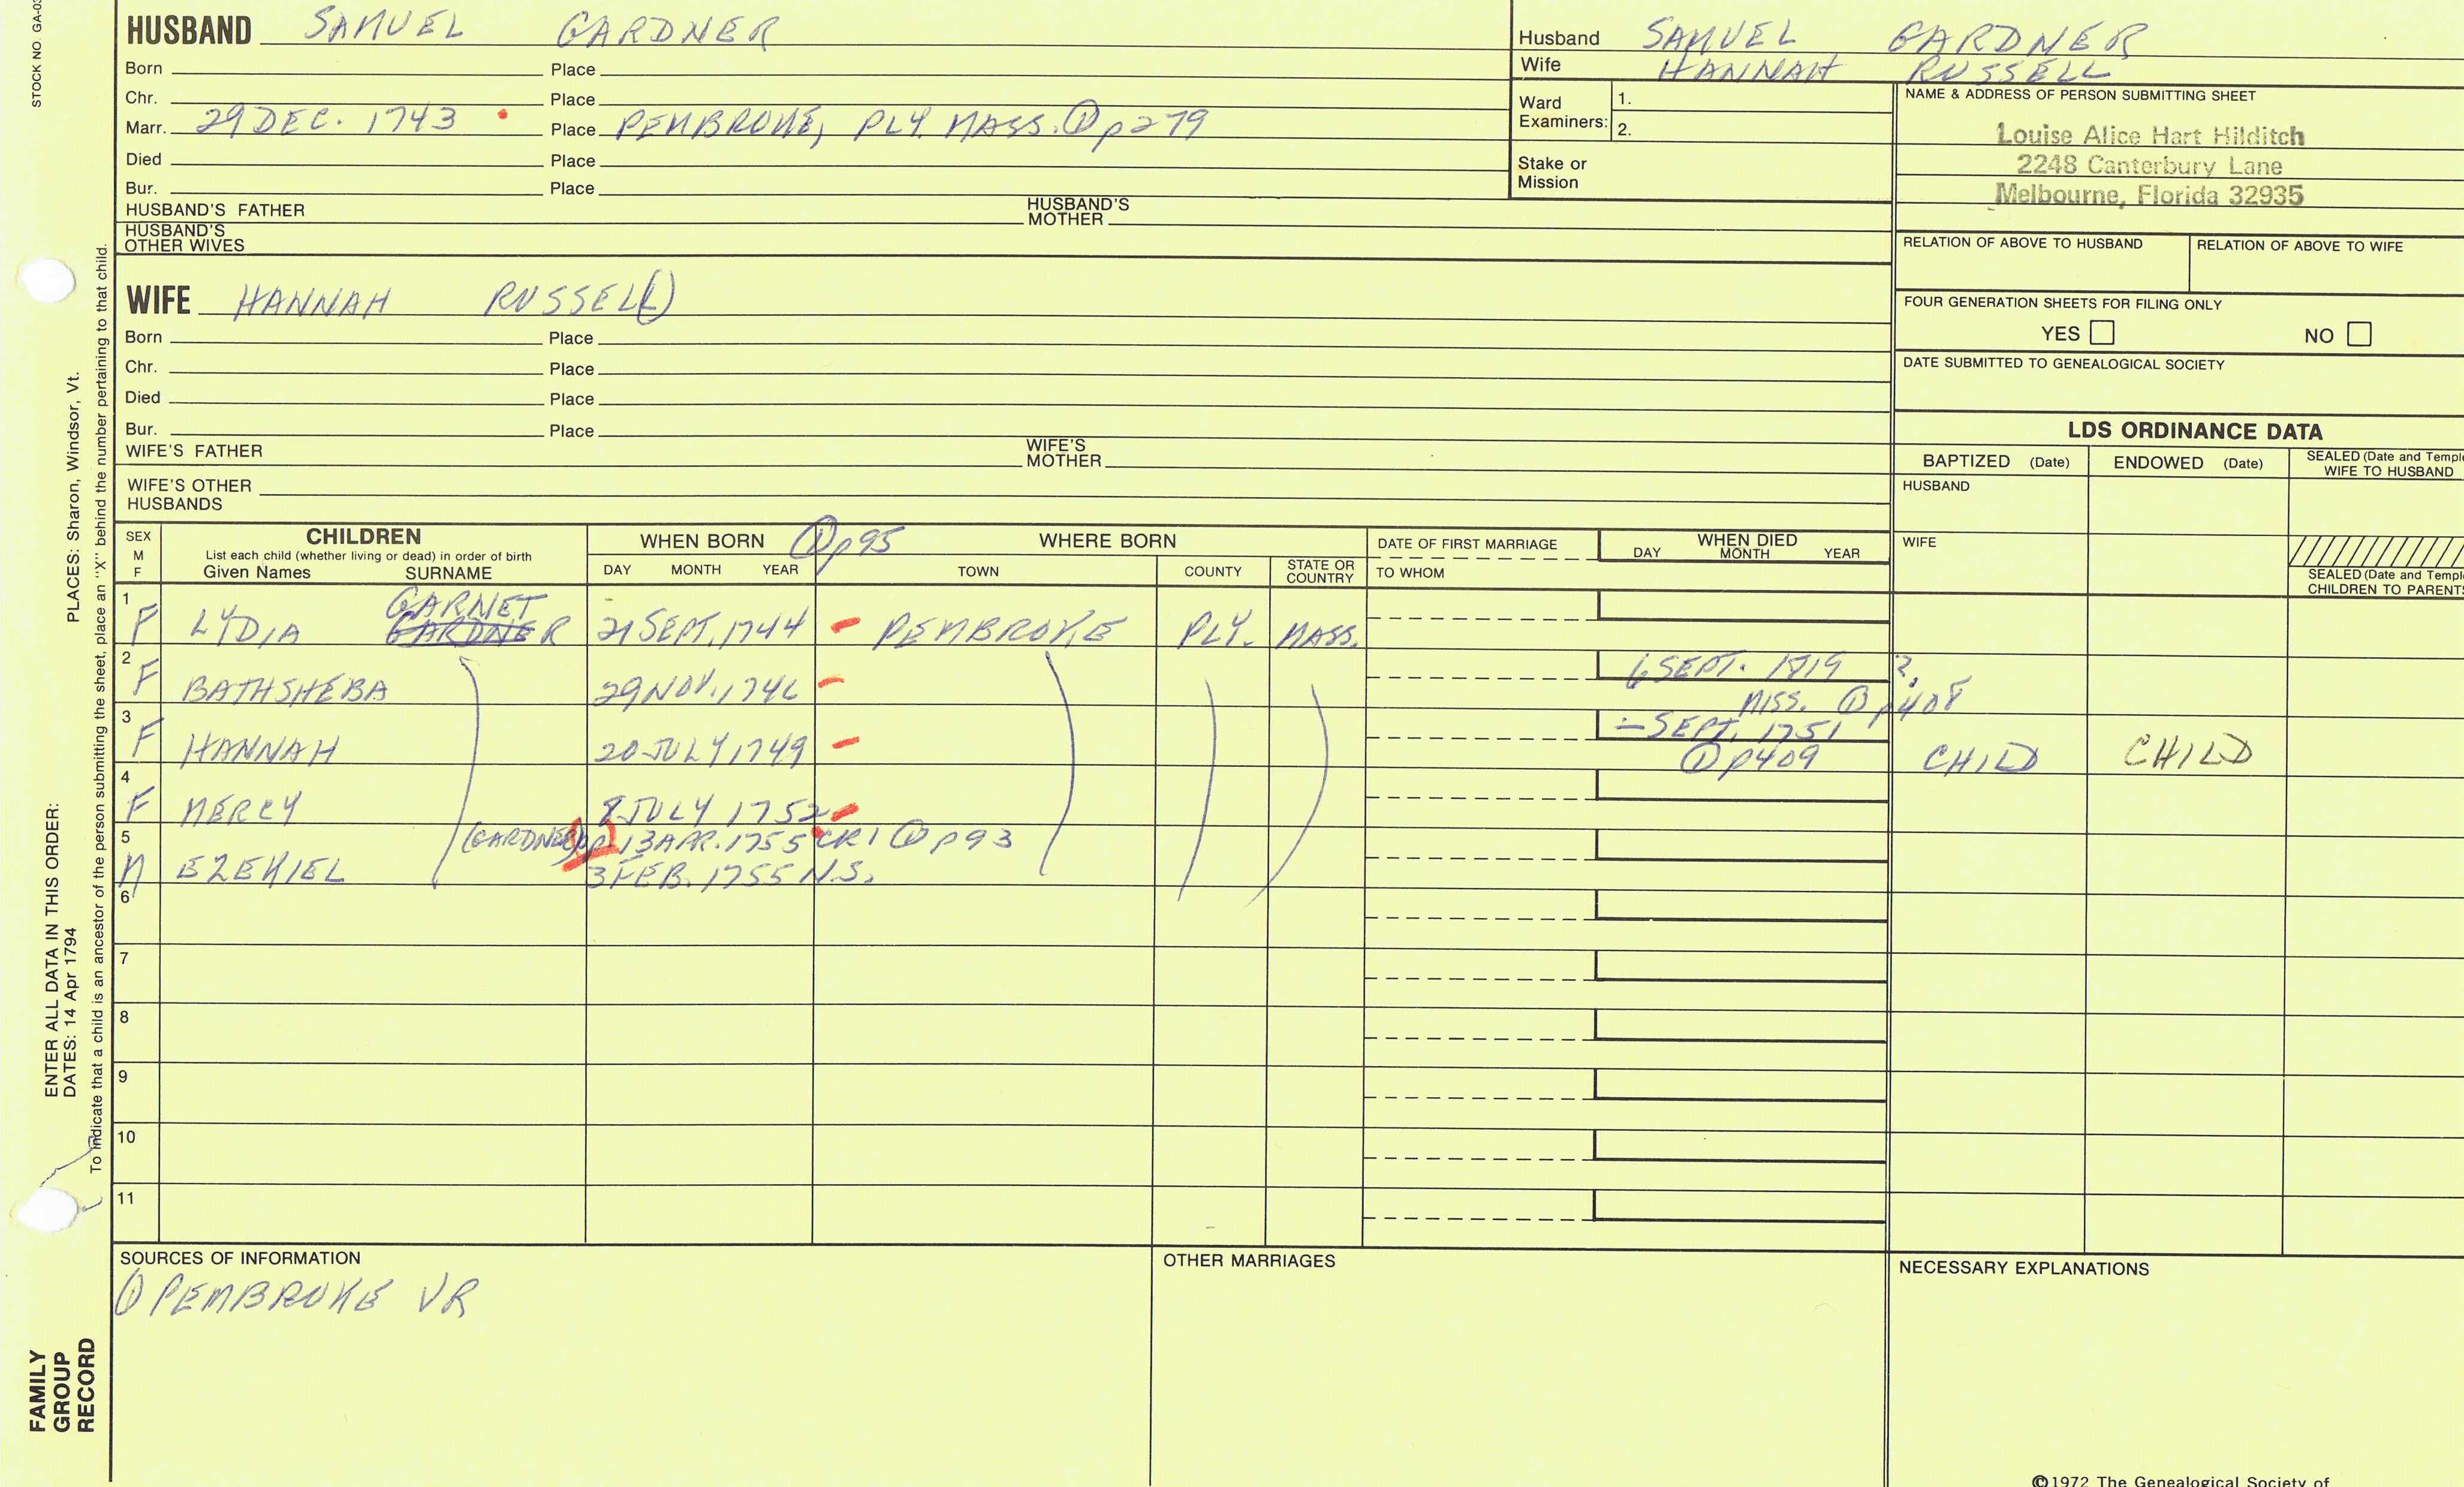 STOCK NO. GA-03
HUSBAND SAMUEL GARDNER
Born Place
Chr. Place
Marr. 29 DEC. 1743 Place PEMBROKE, PLY. MASS. ① p279
Died Place
Bur. Place
HUSBAND'S FATHER HUSBAND'S MOTHER
HUSBAND'S OTHER WIVES
Husband SAMUEL GARDNER
Wife HANNAH RUSSELL
Ward Examiners: 1.
2.
Stake or Mission
NAME & ADDRESS OF PERSON SUBMITTING SHEET
Louise Alice Hart Hilditch
2248 Canterbury Lane
Melbourne, Florida 32935
RELATION OF ABOVE TO HUSBAND RELATION OF ABOVE TO WIFE
FOUR GENERATION SHEETS FOR FILING ONLY
YES NO
DATE SUBMITTED TO GENEALOGICAL SOCIETY
WIFE HANNAH RUSSEL(L)
Born Place
Chr. Place
Died Place
Bur. Place
WIFE'S FATHER WIFE'S MOTHER
WIFE'S OTHER HUSBANDS
LDS ORDINANCE DATA
BAPTIZED (Date) ENDOWED (Date) SEALED (Date and Temple
WIFE TO HUSBAND
HUSBAND
WIFE
SEALED (Date and Temple
CHILDREN TO PARENTS
SEX
M
F
CHILDREN
List each child (whether living or dead) in order of birth
Given Names SURNAME
WHEN BORN ① p95 WHERE BORN
DAY MONTH YEAR TOWN COUNTY STATE OR COUNTRY
DATE OF FIRST MARRIAGE
TO WHOM
WHEN DIED
DAY MONTH YEAR
1 GARNET
F LYDIA GARDNER 21 SEPT. 1744 PEMBROKE PLY. MASS.
2
F BATHSHEBA 29 NOV. 1746 6 SEPT. 1819 ?
MISS. ① p408
3
F HANNAH 20 JULY 1749 - SEPT. 1751
① p409 CHILD CHILD
4
F MERCY 8 JULY 1752
5 (GARDNER) 13 APR. 1755 CR1 ① p93
M EZEKIEL 3 FEB. 1755 N.S.
6
7
8
9
10
11
SOURCES OF INFORMATION
① PEMBROKE VR
OTHER MARRIAGES
NECESSARY EXPLANATIONS
©1972 The Genealogical Society of
To indicate that a child is an ancestor of the person submitting the sheet, place an "X" behind the number pertaining to that child.
ENTER ALL DATA IN THIS ORDER:
DATES: 14 Apr 1794 PLACES: Sharon, Windsor, Vt.
FAMILY
GROUP
RECORD